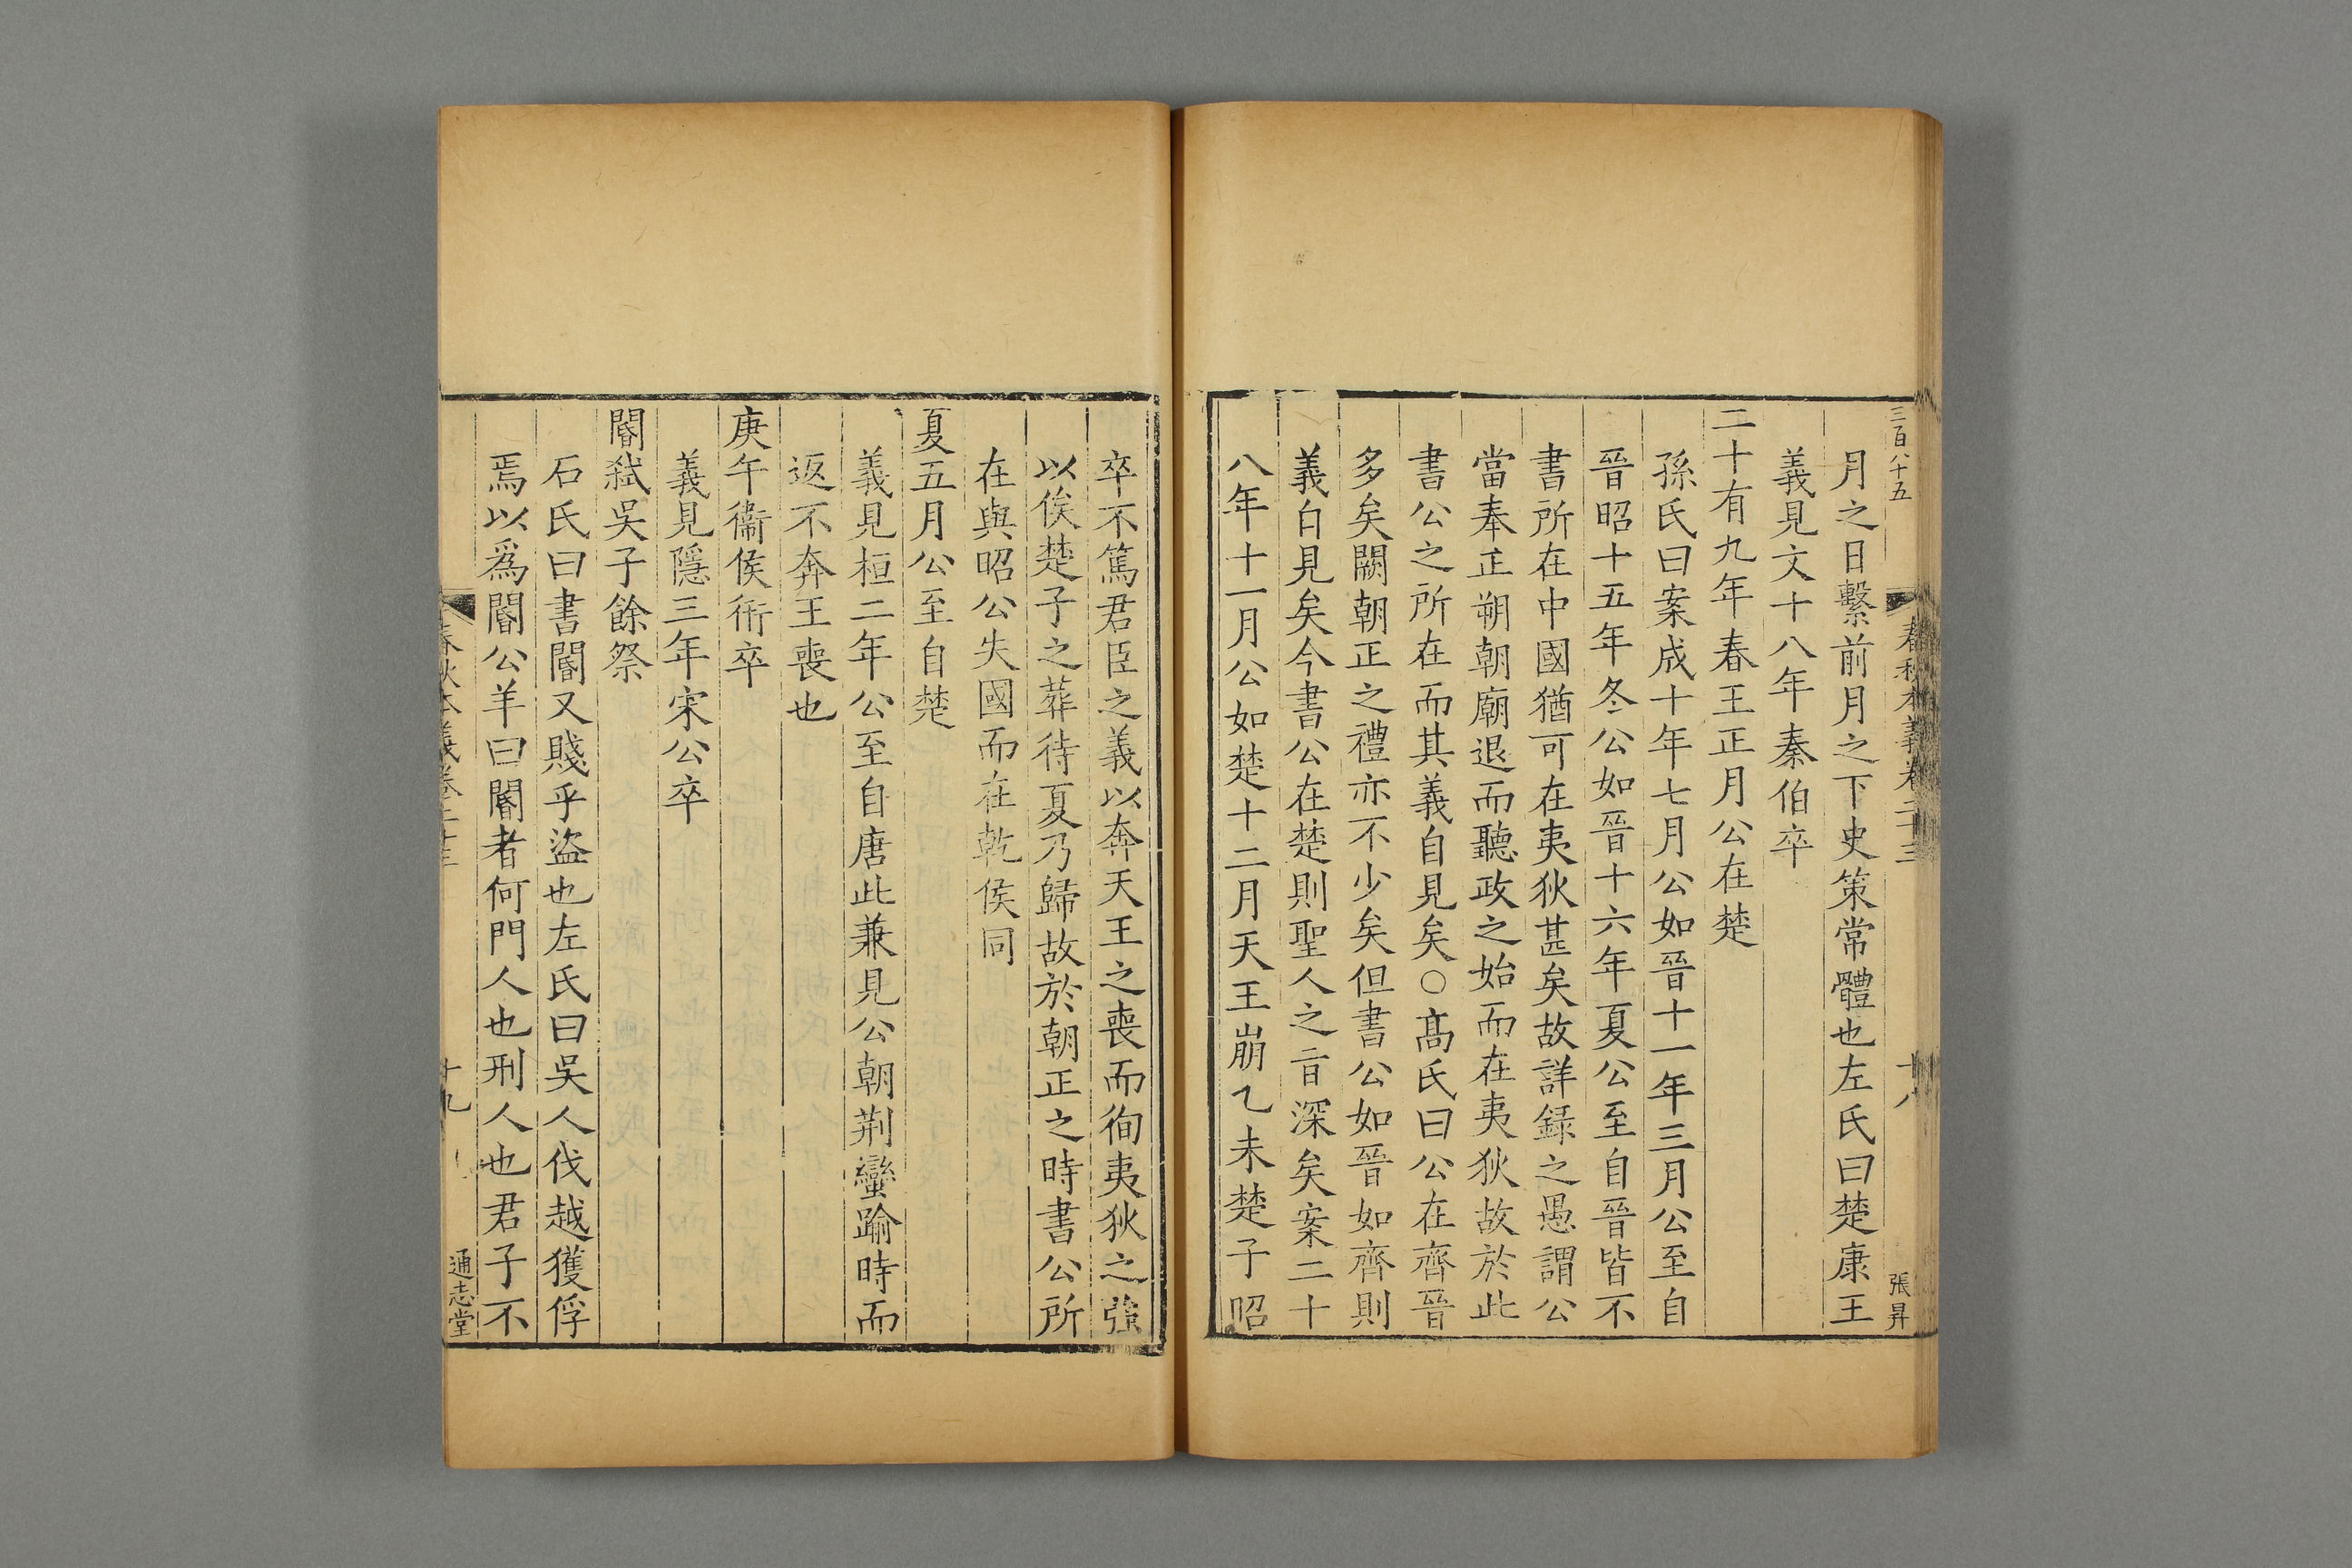 三百八十五
春秋本義卷二十三
十八
張昇
月之日繫前月之下史策常體也左氏曰楚康王
義見文十八年秦伯卒
二十有九年春王正月公在楚
孫氏曰案成十年七月公如晉十一年三月公至自
晉昭十五年冬公如晉十六年夏公至自晉皆不
書所在中國猶可在夷狄甚矣故詳録之愚謂公
當奉正朔朝廟退而聽政之始而在夷狄故於此
書公之所在而其義自見矣○髙氏曰公在齊晉
多矣闕朝正之禮亦不少矣但書公如晉如齊則
義白見矣今書公在楚則聖人之㫖深矣案二十
八年十一月公如楚十二月天王崩乙未楚子昭
卒不篤君臣之義以奔天王之喪而徇夷狄之強
以俟楚子之葬待夏乃歸故於朝正之時書公所
在與昭公失國而在乾侯同
夏五月公至自楚
義見桓二年公至自唐此兼見公朝荆蠻踰時而
返不奔王喪也
庚午衞侯衎卒
義見隱三年宋公卒
閽弑吳子餘祭
石氏曰書閽又賤乎盜也左氏曰吳人伐越獲俘
焉以爲閽公羊曰閽者何門人也刑人也君子不
春秋本義卷二十三
十九
通志堂